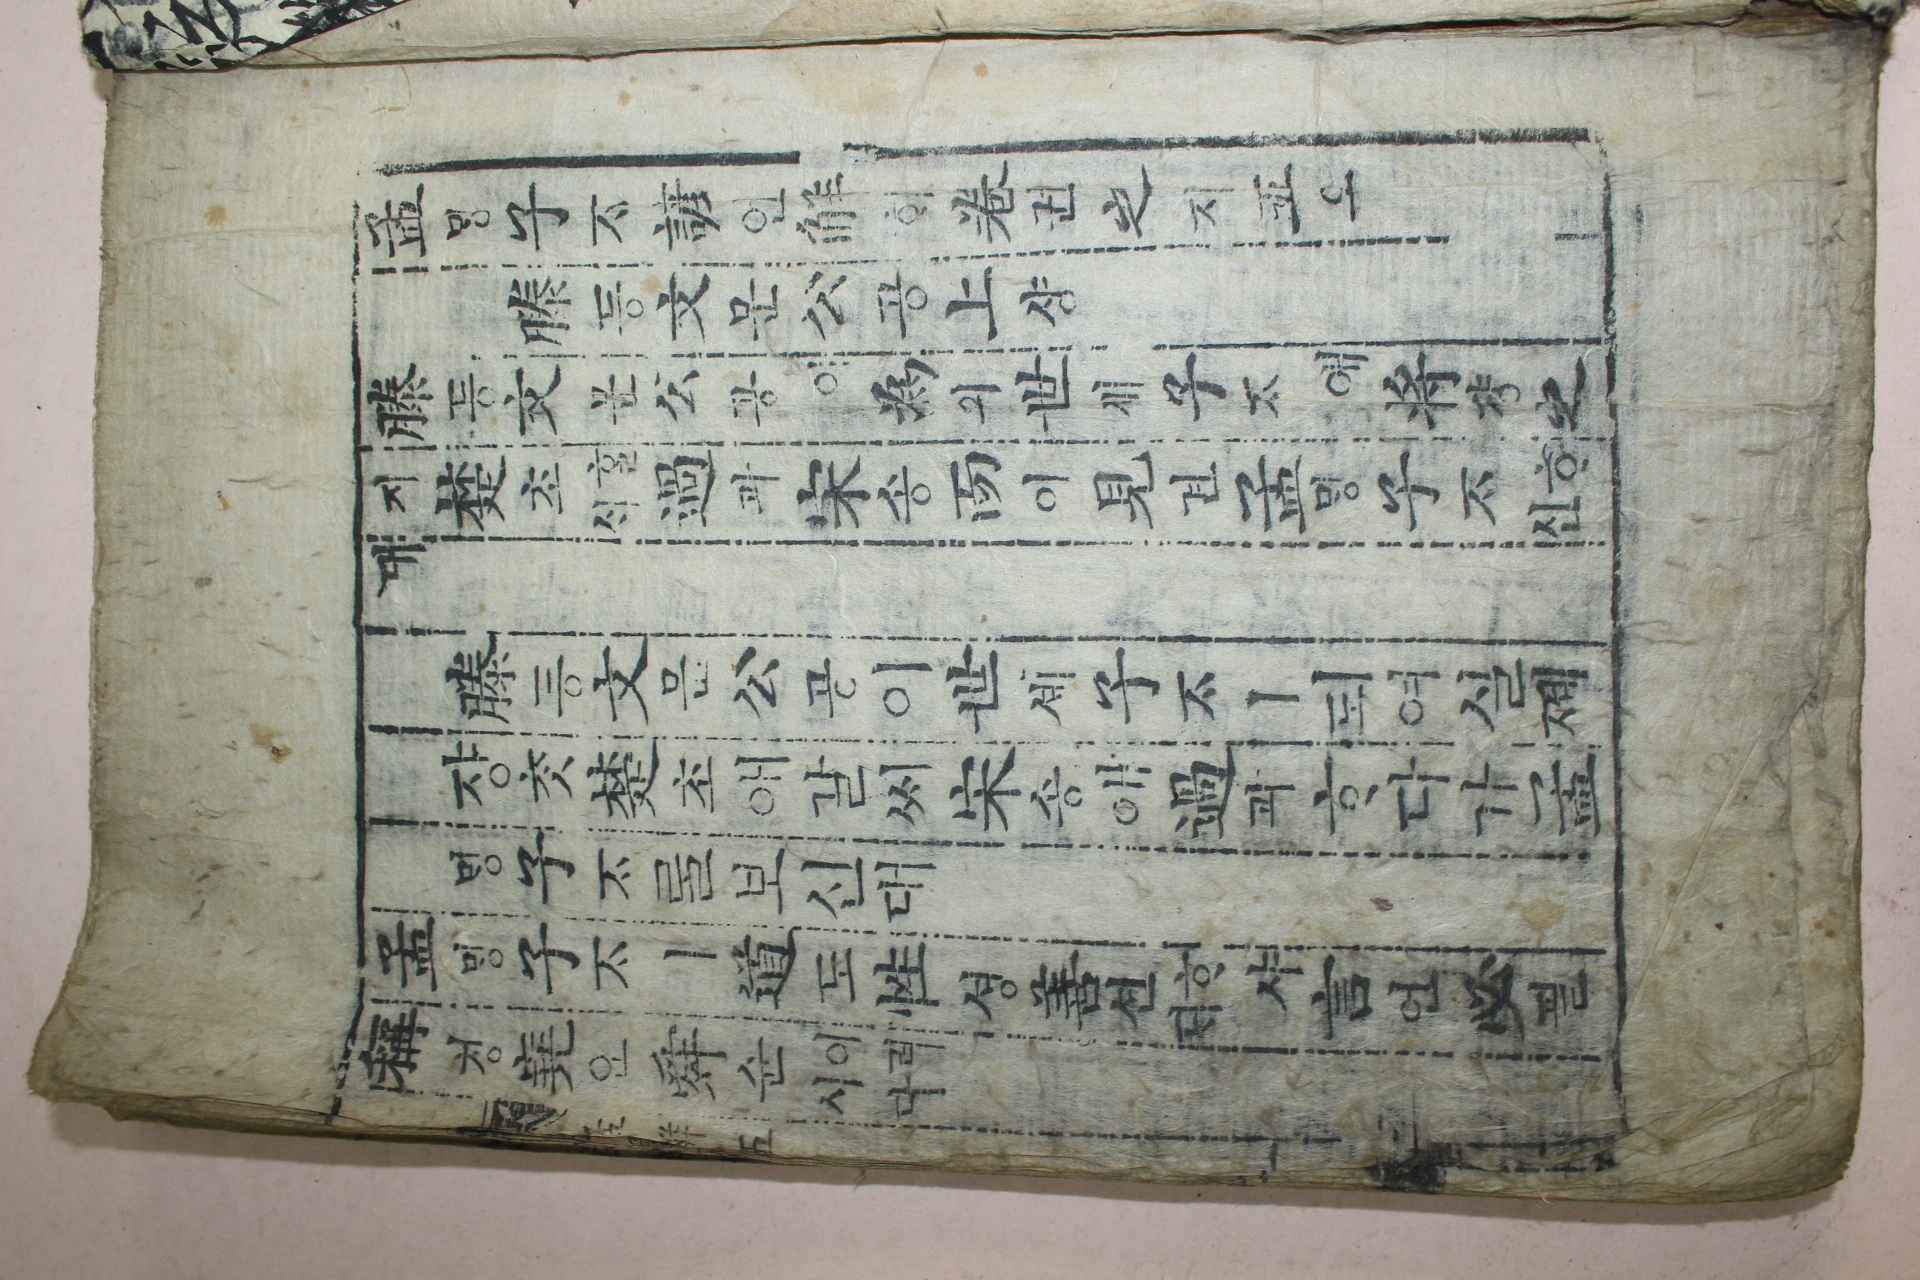 孟밍子ᄌᆞ諺언解ᄒᆡ卷권之지五오
滕등文문公공上샹
滕등文문公공이爲위世셰子ᄌᆞ애將쟝之
지楚초ᄒᆞᆯᄉᆡ過과宋송而이見견孟밍子ᄌᆞᄒᆞ신
대
滕등文문公공이世셰子ᄌᆞㅣ되여실제
쟝ᄎᆞᆺ楚초애갈ᄉᆡ宋송애過과ᄒᆞ다가孟
밍子ᄌᆞ를보신대
孟밍子ᄌᆞㅣ道도性셩善션ᄒᆞ샤ᄃᆡ言언必필
稱칭堯요舜슌이러시다